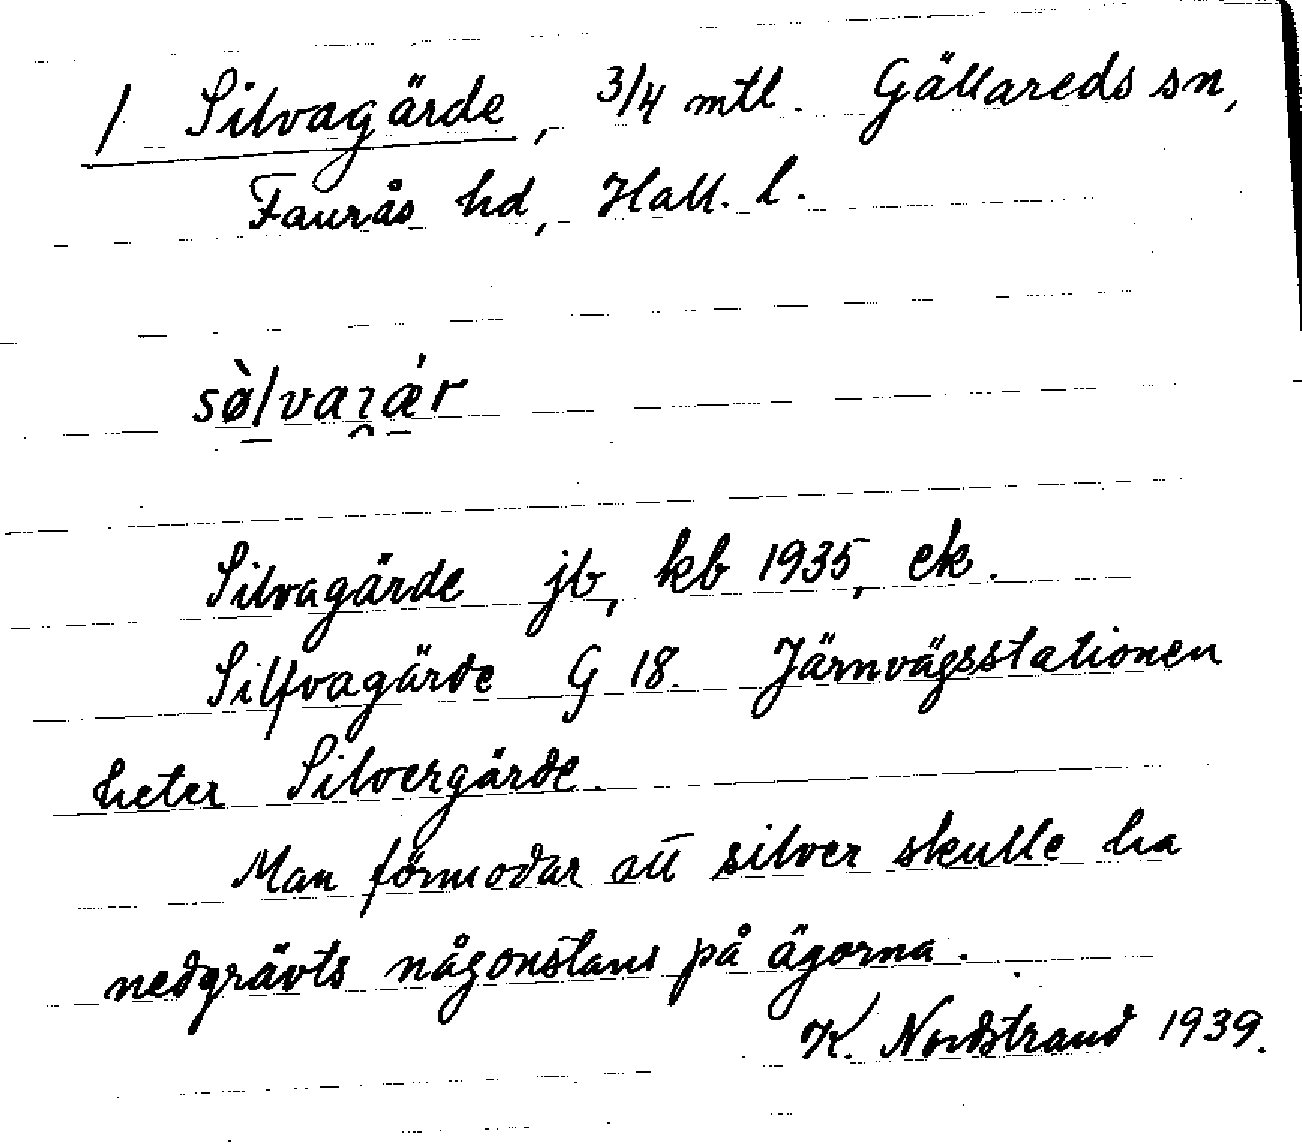 / Silvagärde, 3/4 mtl. Gällareds sn,
Faurås hd, Hall. l.
Silvagärde jb, kb 1935, ek.
Silfvagärde G 18. Järnvägsstationen
heter Silvergärde.
Man förmodar att silver skulle ha
nedgrävts någonstans på ägorna.
K. Nordstrand 1939.